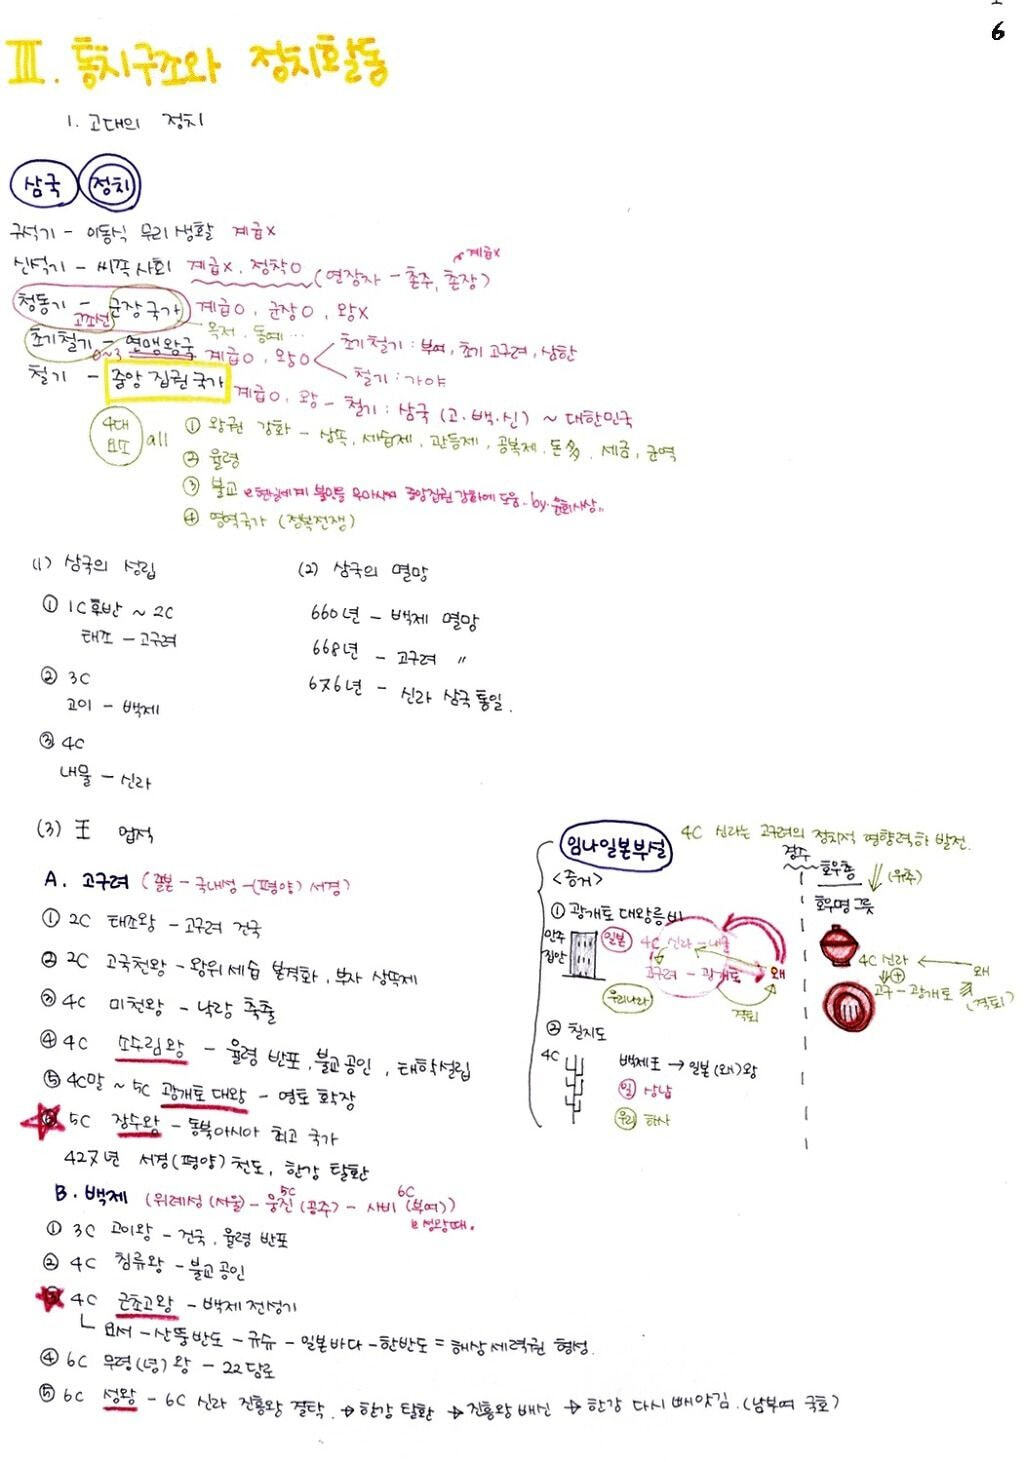 6
III. 통치구조와 정치활동
1. 고대의 정치
삼국 정치
구석기 - 이동식 무리 생활 계급X
신석기 - 씨족 사회 계급X, 정착O (연장자 - 촌주, 촌장) 계급X
청동기 - 군장국가 계급O, 군장O, 왕X
고조선 옥저, 동예...
초기철기 - 연맹왕국 계급O, 왕O 초기철기 : 부여, 초기 고구려, 삼한
0~3
철기 : 가야
철기 - 중앙 집권 국가 계급O, 왕 - 철기 : 삼국 (고.백.신) ~ 대한민국
4대 요소 all ① 왕권 강화 - 상속, 세습제, 관등제, 공복제, 돈多, 세금, 군역
② 율령
③ 불교 중앙집권 강화에 도움. by.윤회사상
④ 영역국가 (정복전쟁)
(1) 삼국의 성립
① 1C후반 ~ 2C
태조 - 고구려
② 3C
고이 - 백제
③ 4C
내물 - 신라
(2) 삼국의 멸망
660년 - 백제 멸망
668년 - 고구려 〃
676년 - 신라 삼국통일.
(3) 王 업적
A. 고구려 (졸본 - 국내성 - (평양) 서경)
① 2C 태조왕 - 고구려 건국
② 2C 고국천왕 - 왕위세습 본격화, 부자 상속제
③ 4C 미천왕 - 낙랑 축출
④ 4C 소수림왕 - 율령 반포, 불교공인, 태학설립
⑤ 4C말 ~ 5C 광개토 대왕 - 영토 확장
⑥ 5C 장수왕 - 동북아시아 최고 국가
427년 서경(평양) 천도, 한강 탈환
B. 백제 (위례성 (서울) - 5C 웅진 (공주) - 6C 사비 (부여))
성왕때.
① 3C 고이왕 - 건국, 율령 반포
② 4C 침류왕 - 불교공인
③ 4C 근초고왕 - 백제 전성기
요서 - 산뚱반도 - 규슈 - 일본바다 - 한반도 = 해상세력권 형성.
④ 6C 무령(녕)왕 - 22담로
⑤ 6C 성왕 - 6C 신라 진흥왕 결탁. → 한강 탈환 → 진흥왕 배신 → 한강 다시 빼앗김. (남부여 국호)
임나일본부설
<증거>
① 광개토 대왕릉비
만주 집안
일본 4C 신라 - 내물
고구려 - 광개토 왜
우리나라 격퇴
② 칠지도
4C 백제표 → 일본(왜)왕
일 상납
우리 하사
4C 신라는 고구려의 정치적 영향력하 발전.
경주 호우총 (위주)
호우명 그릇
4C 신라 왜
고구 - 광개토 (격퇴)